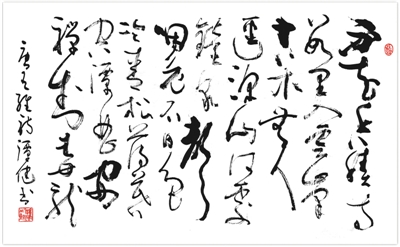 不知香積寺
数里入雲峰
古木無人
徑深山何處
鐘泉聲
咽危石日色
冷青松薄暮
空潭曲安
禪制毒龍
唐王維詩 書